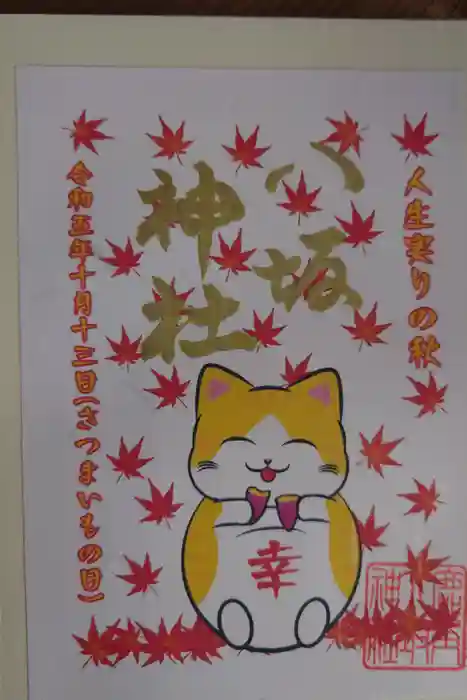 人生実りの秋
八坂
神社
令和五年十月十三日(さつまいもの日)
幸